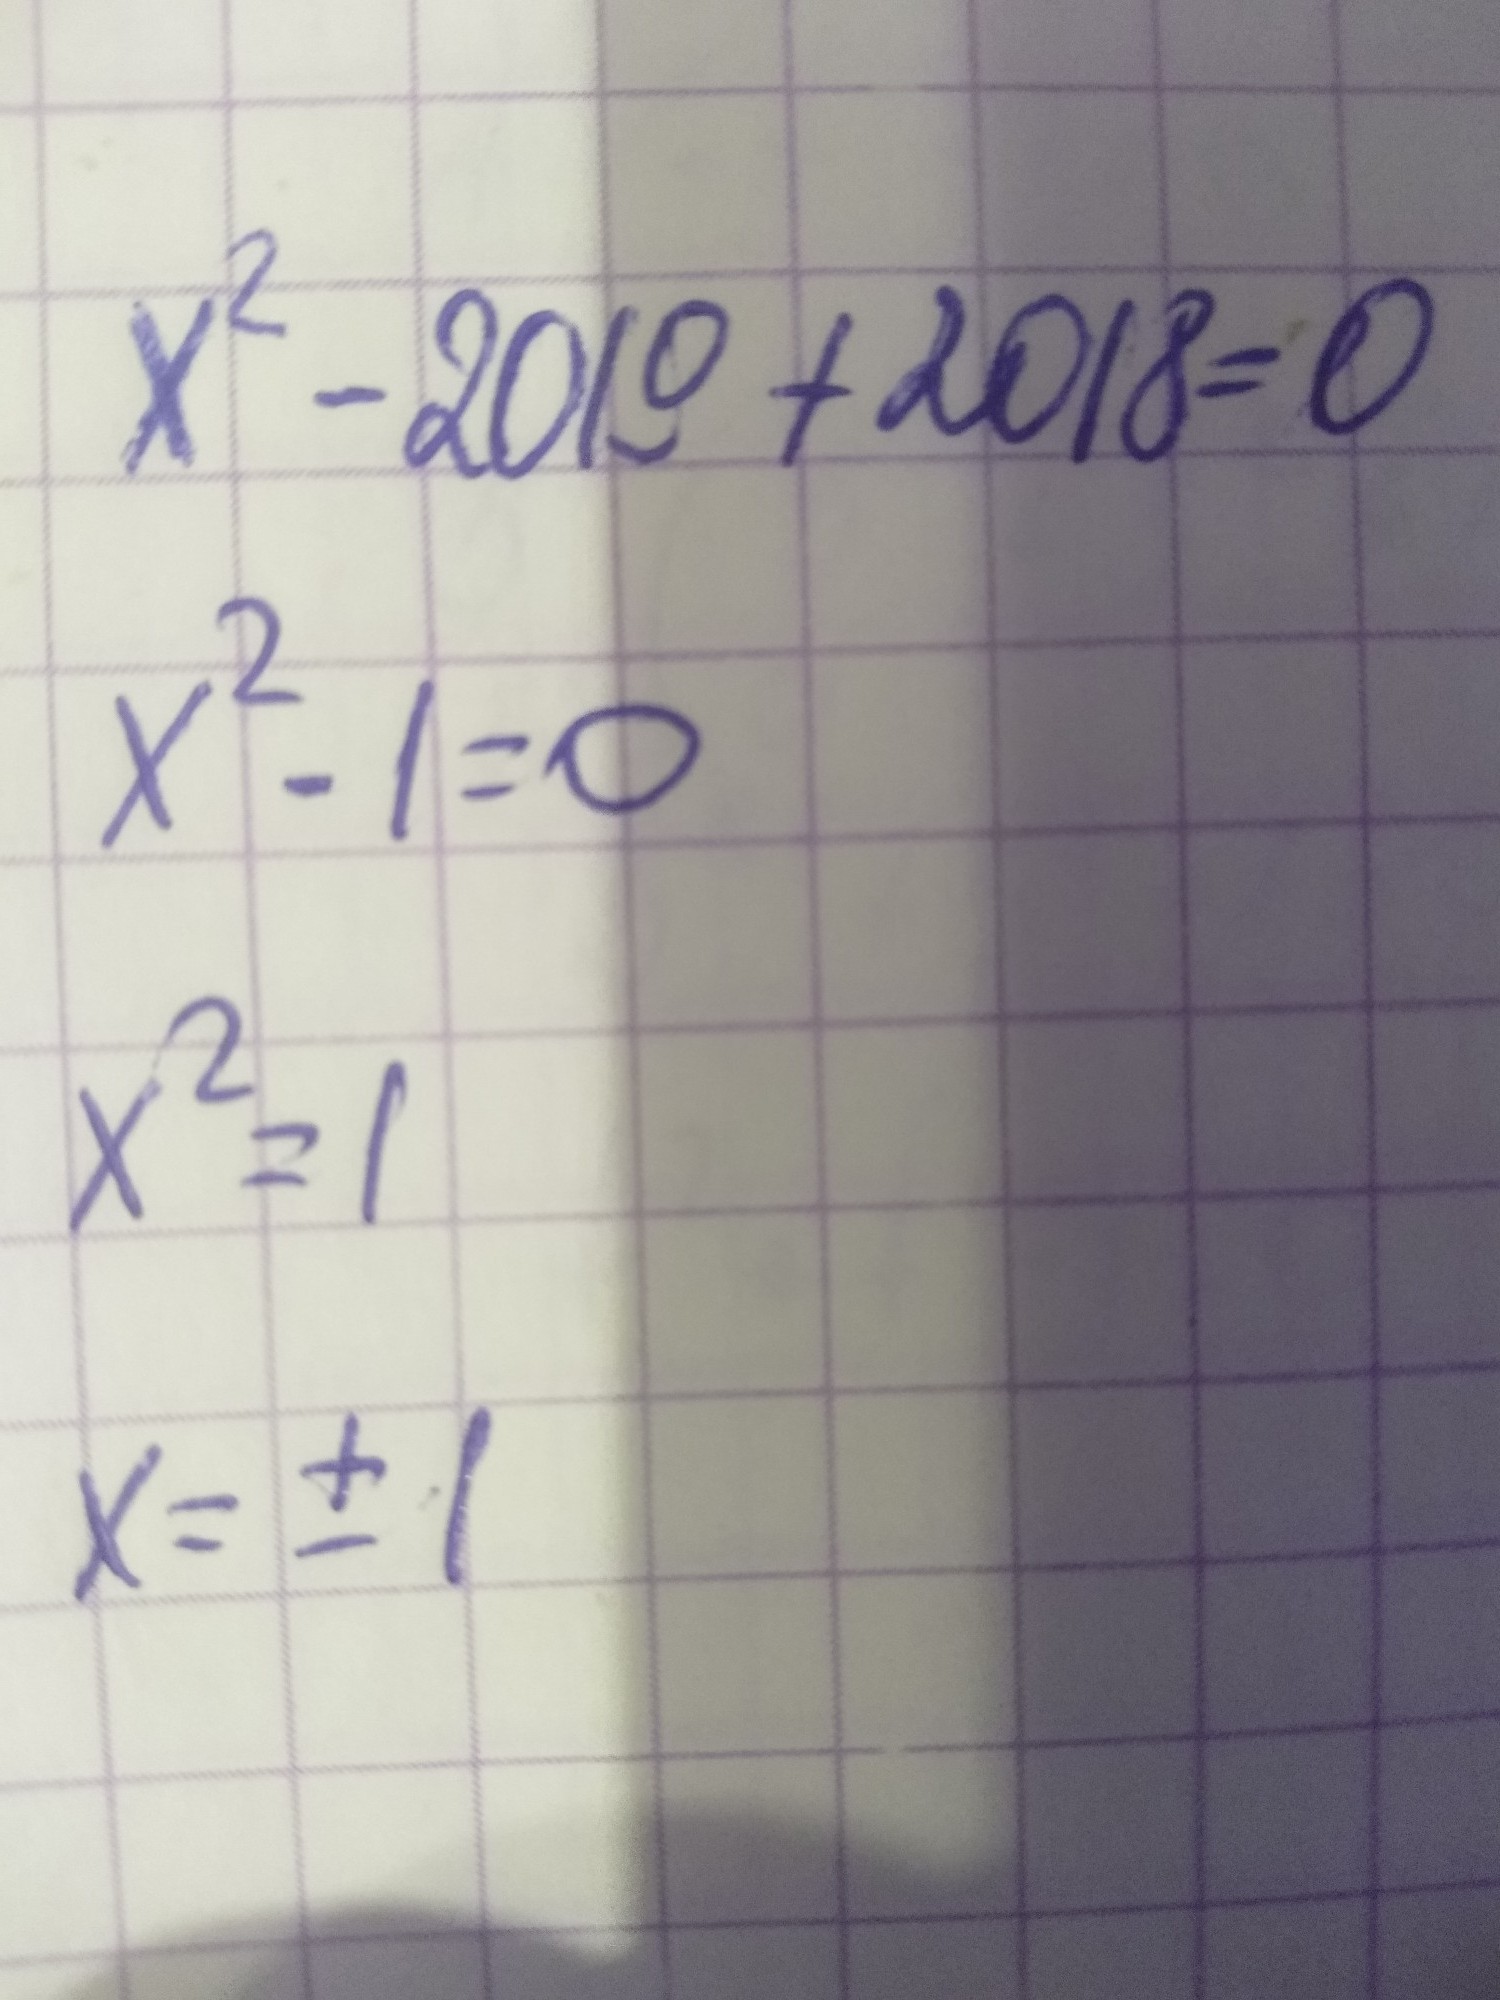 x² - 2019 + 2018 = 0
x² - 1 = 0
x² = 1
x = ± 1